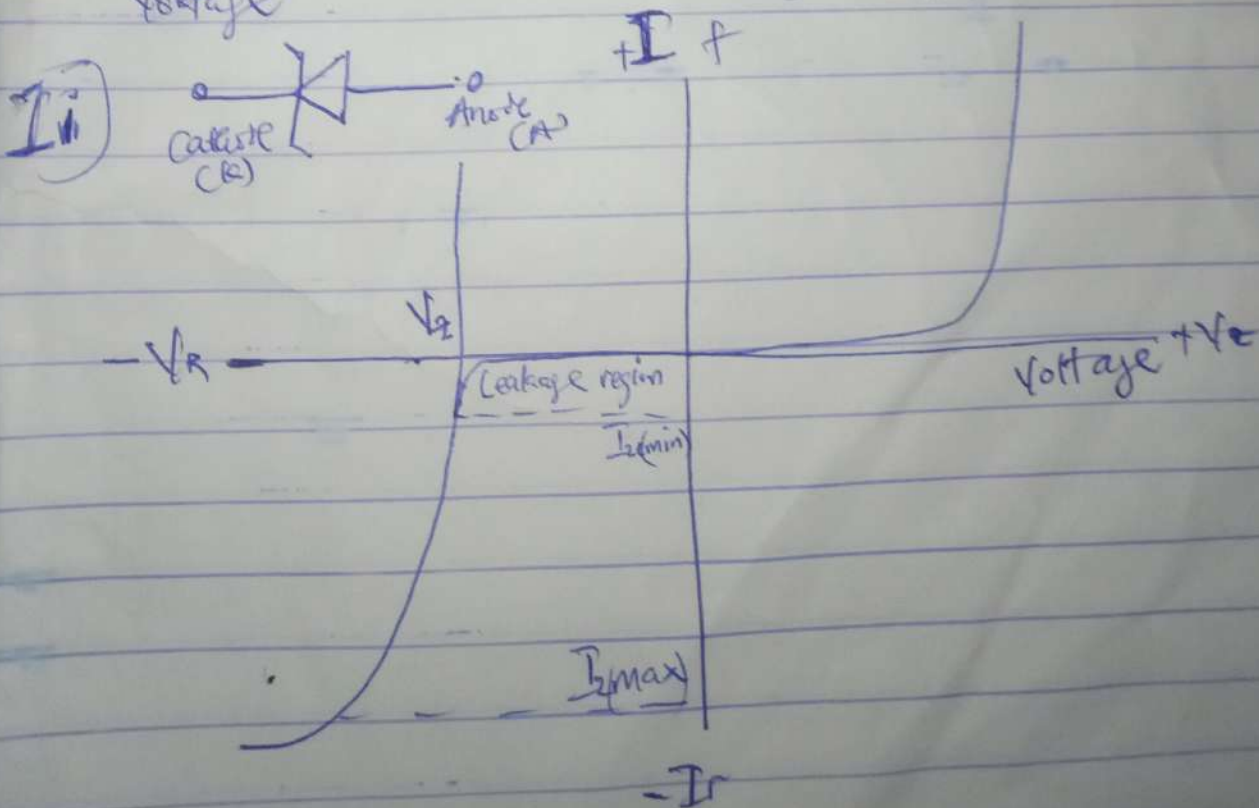 Voltage
Iii)
Cathode
(K)
Anode
(A)
+I f
Vz
-VR
Leakage region
Iz(min)
Voltage +Ve
Iz(max)
-Ir